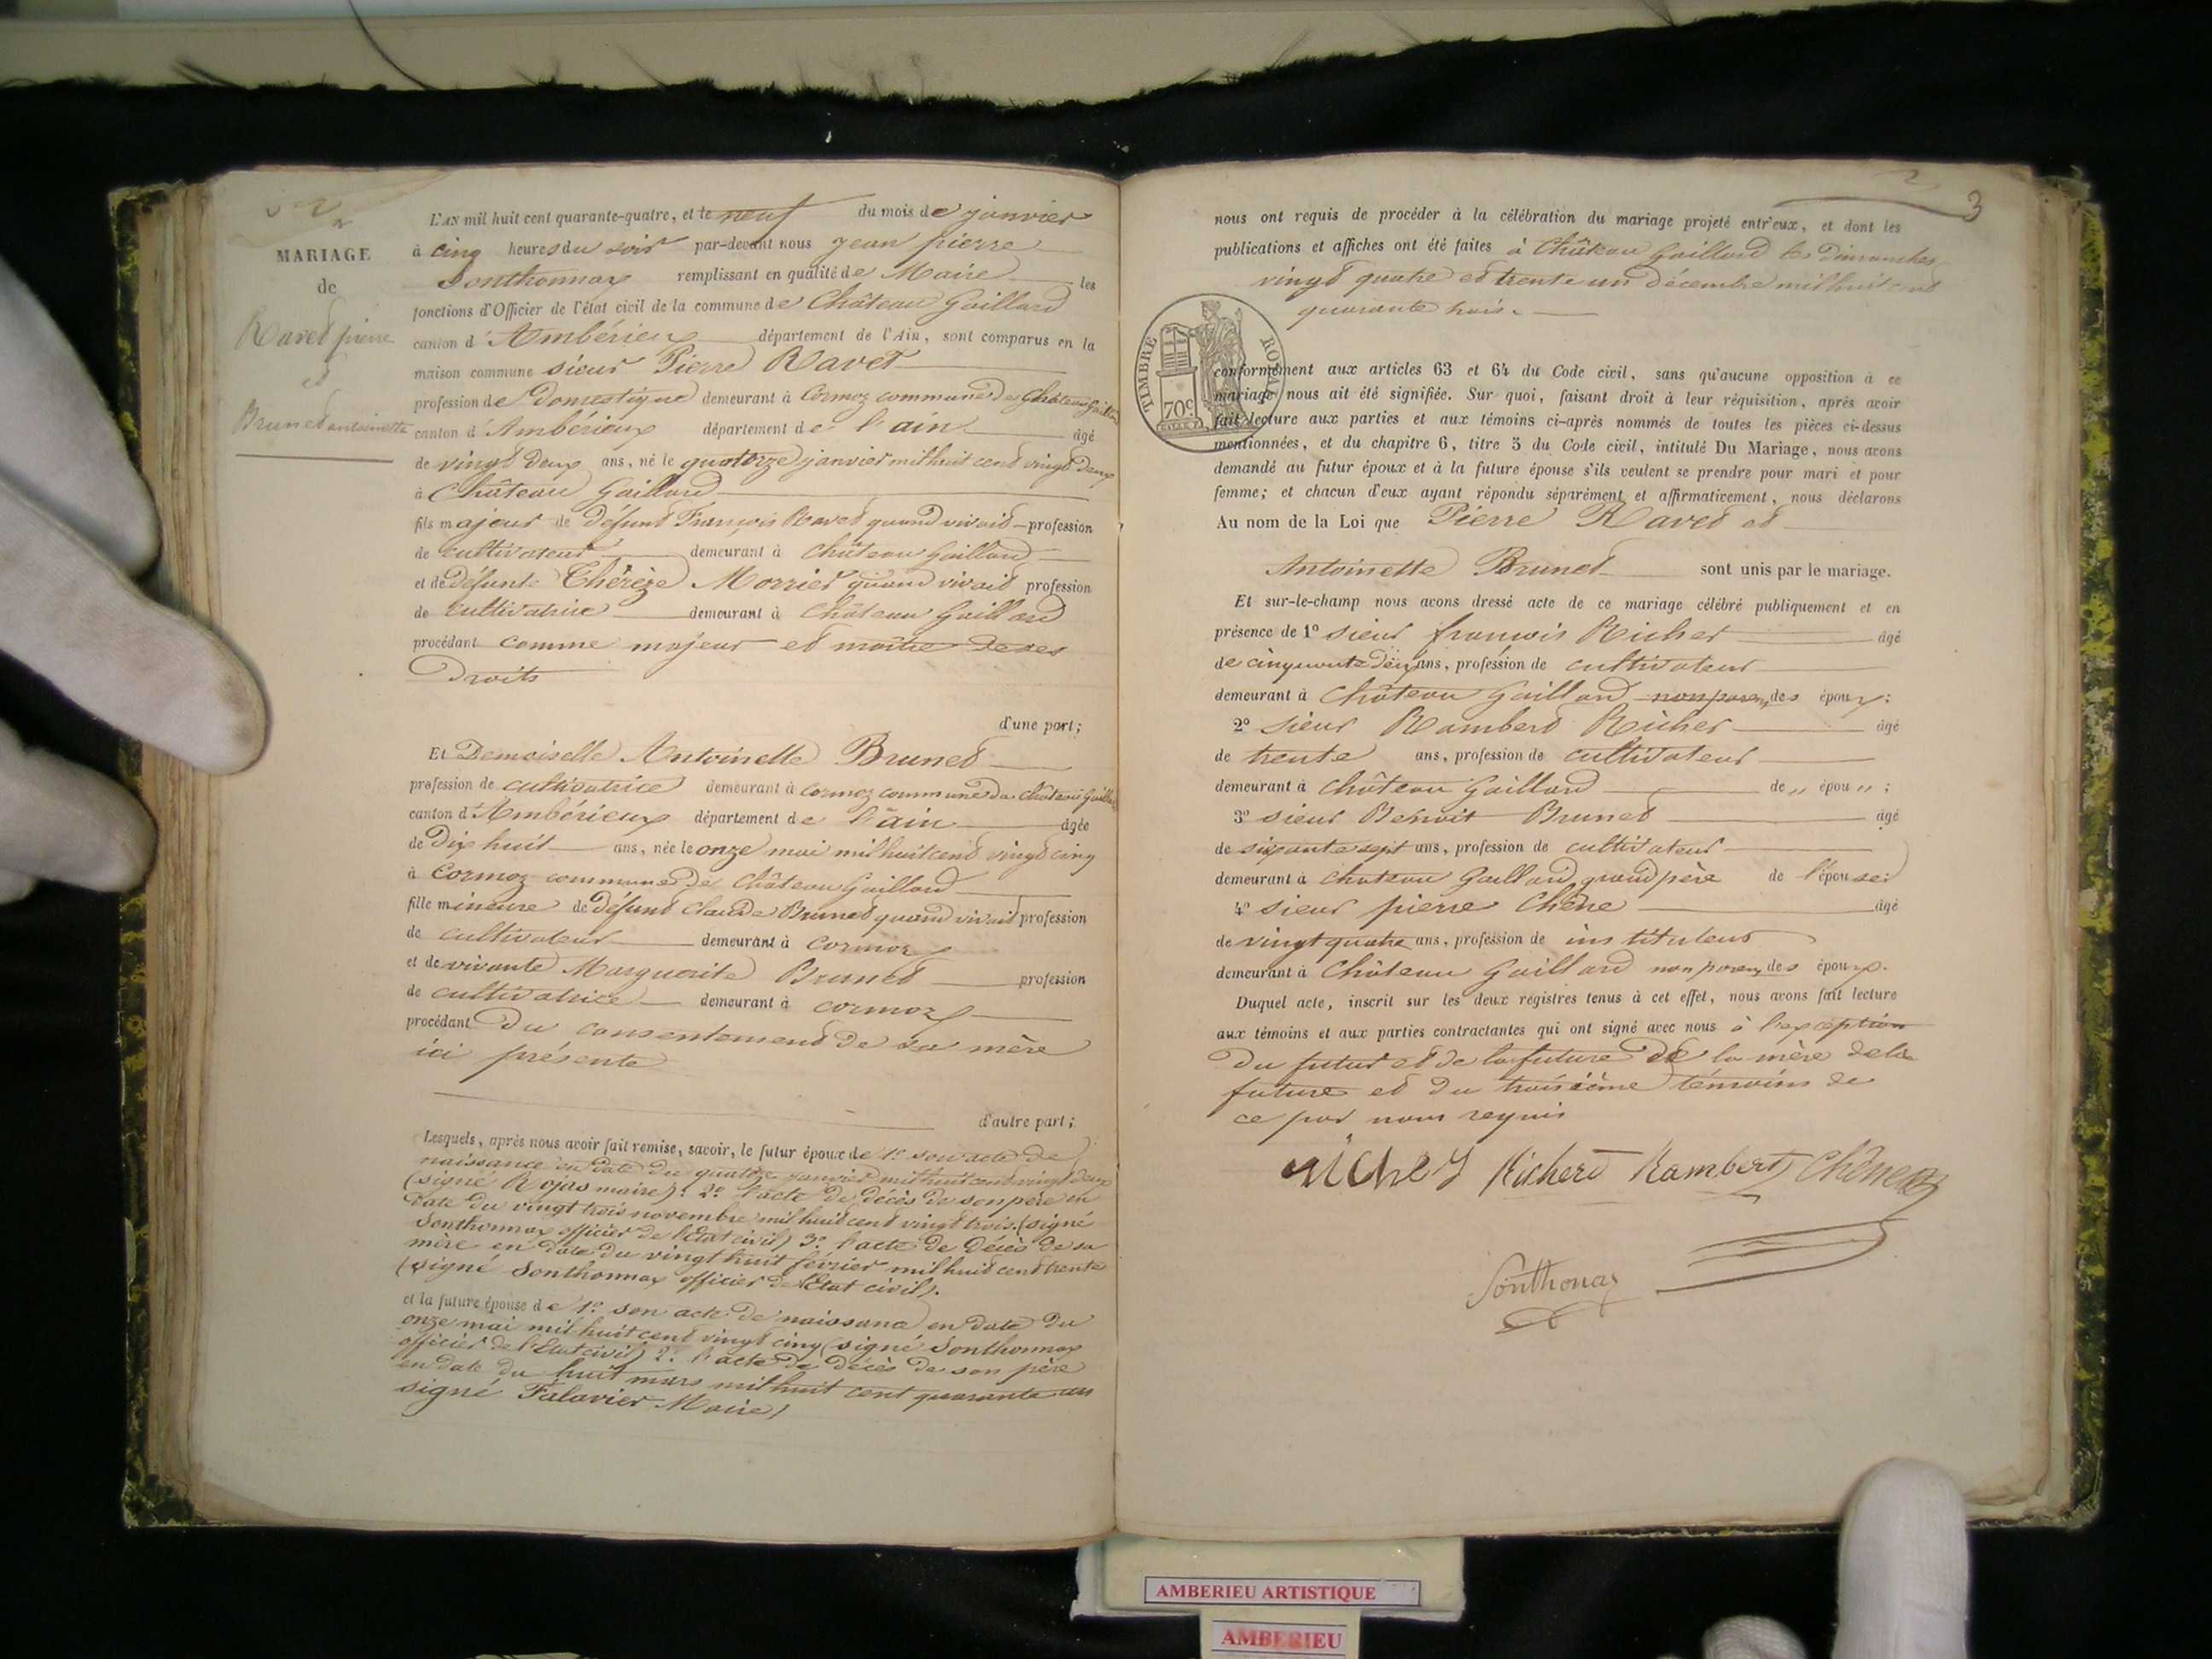 2
MARIAGE
de
Ravet pierre
et
Brunet antoinette
L'AN mil huit cent quarante-quatre, et le neuf du mois de janvier
à cinq heures du soir par-devant nous jean pierre
Sonthonnax remplissant en qualité de Maire les
fonctions d'Officier de l'état civil de la commune de Château Gaillard
canton d'Ambérieux département de l'Ain, sont comparus en la
maison commune sieur Pierre Ravet
profession de Domestique demeurant à Cormoz commune de Château Gaillard
canton d'Ambérieux département de l'ain âgé
de vingt deux ans, né le quatorze janvier mil huit cent vingt deux
à Château Gaillard
fils majeur de défunt François Ravet quand vivait profession
de cultivateur demeurant à Château Gaillard
et de défunte Thérèze Morrier quand vivait profession
de cultivatrice demeurant à Château Gaillard
procédant comme majeur et maître de ses
Droits
d'une part;
Et Demoiselle Antoinette Brunet
profession de cultivatrice demeurant à Cormoz commune de Château Gaillard
canton d'Ambérieux département de l'ain âgée
de Dix huit ans, née le onze mai mil huit cent vingt cinq
à Cormoz commune de Château Gaillard
fille mineure de défunt Claude Brunet quand vivait profession
de cultivateur demeurant à Cormoz
et de vivante Marguerite Brunet profession
de cultivatrice demeurant à cormoz
procédant du consentement de sa mère
ici présente
d'autre part;
Lesquels, après nous avoir fait remise, savoir, le futur époux de 1º son acte de
naissance en date du janvier mil huit cent vingt deux
(signé Rojas maire). 2º l'acte de décès de son père en
date du vingt trois novembre mil huit cent vingt trois. (signé
Sonthonnax officier de l'Etat civil) 3º l'acte de décès de sa
mère en date du vingt huit février mil huit cent trente
(signé Sonthonnax officier de l'Etat civil).
et la future épouse de 1º son acte de naissance en date du
onze mai mil huit cent vingt cinq (signé Sonthonnax
officier de l'Etat civil) 2º l'acte de décès de son père
en date du huit mars mil huit cent quarante un
signé Falavier Maire)
2
3
nous ont requis de procéder à la célébration du mariage projeté entr'eux, et dont les
publications et affiches ont été faites à Château Gaillard les Dimanches
vingt quatre et trente un décembre mil huit cent
quarante trois.
TIMBRE ROYAL
70c
conformément aux articles 63 et 64 du Code civil, sans qu'aucune opposition à ce
mariage nous ait été signifiée. Sur quoi, faisant droit à leur réquisition, après avoir
fait lecture aux parties et aux témoins ci-après nommés de toutes les pièces ci-dessus
mentionnées, et du chapitre 6, titre 5 du Code civil, intitulé Du Mariage, nous avons
demandé au futur époux et à la future épouse s'ils veulent se prendre pour mari et pour
femme; et chacun d'eux ayant répondu séparément et affirmativement, nous déclarons
Au nom de la Loi que Pierre Ravet et
Antoinette Brunet sont unis par le mariage.
Et sur-le-champ nous avons dressé acte de ce mariage célébré publiquement et en
présence de 1º sieur françois Richer âgé
de cinquante deux ans, profession de cultivateur
demeurant à Château Gaillard non parent des époux:
2º sieur Rambert Richer âgé
de trente ans, profession de cultivateur
demeurant à Château Gaillard de " épou ";
3º sieur Benoit Brunet âgé
de sixante sept ans, profession de cultivateur
demeurant à Chateau Gaillard grand père de l'épouse:
4º sieur pierre Chêne âgé
de vingt quatre ans, profession de instituteur
demeurant à Château Gaillard non parent des époux.
Duquel acte, inscrit sur les deux registres tenus à cet effet, nous avons fait lecture
aux témoins et aux parties contractantes qui ont signé avec nous à l'exception
du futur et de la future de la mère de la
future et du troisième témoins de
ce par nous requis
Richer Richerd Rambert Chêne
Sonthonax
AMBERIEU ARTISTIQUE
AMBERIEU